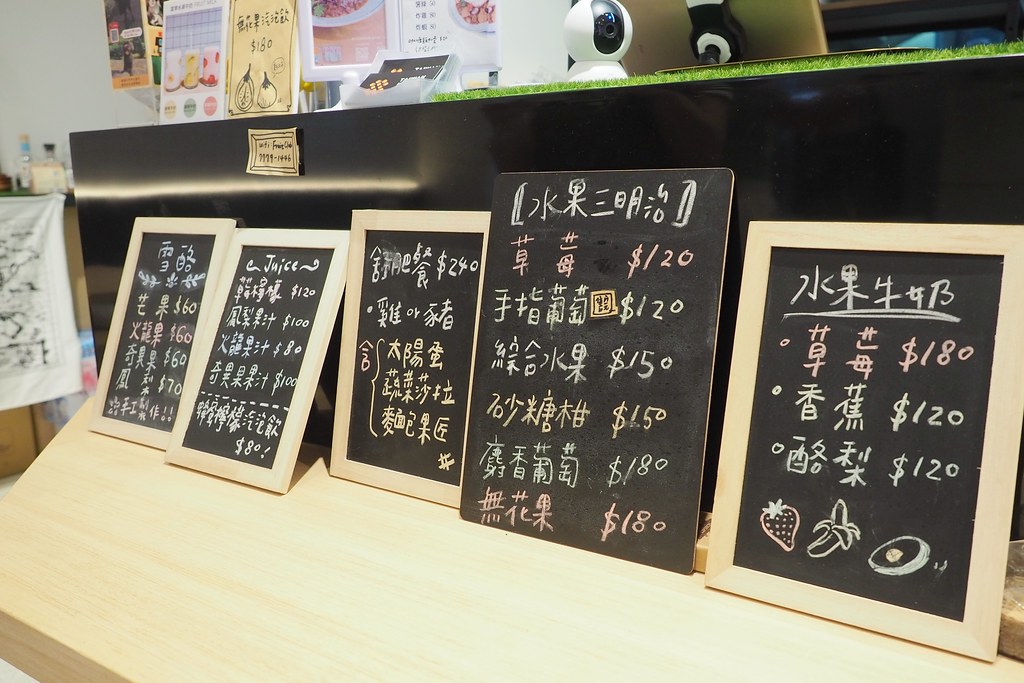 無花果汽泡飲
$180
雪酪
芒果 $60
火龍果 $60
奇異果 $60
鳳梨 $70
手工製作!!
Juice
草莓檸檬 $120
鳳梨果汁 $100
火龍果汁 $80
奇異果果汁 $100
蜂蜜檸檬汽泡飲
$80!
舒肥餐 $240
・雞 or 豬
含 太陽蛋
蔬菜莎拉
麵包果匠
【水果三明治】
草莓 $120
手指葡萄 $120
綜合水果 $150
砂糖柑 $150
麝香葡萄 $180
無花果 $180
水果牛奶
草莓 $180
香蕉 $120
酪梨 $120